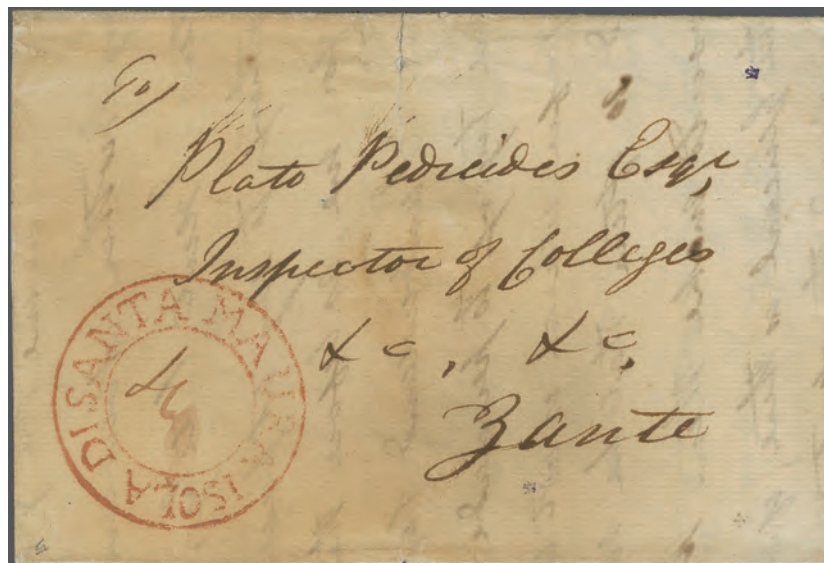 To/
Plato Pedreides Esqr,
Inspector of Colleges
&c, &c,
Zante
ISOLA DI SANTA MAURA